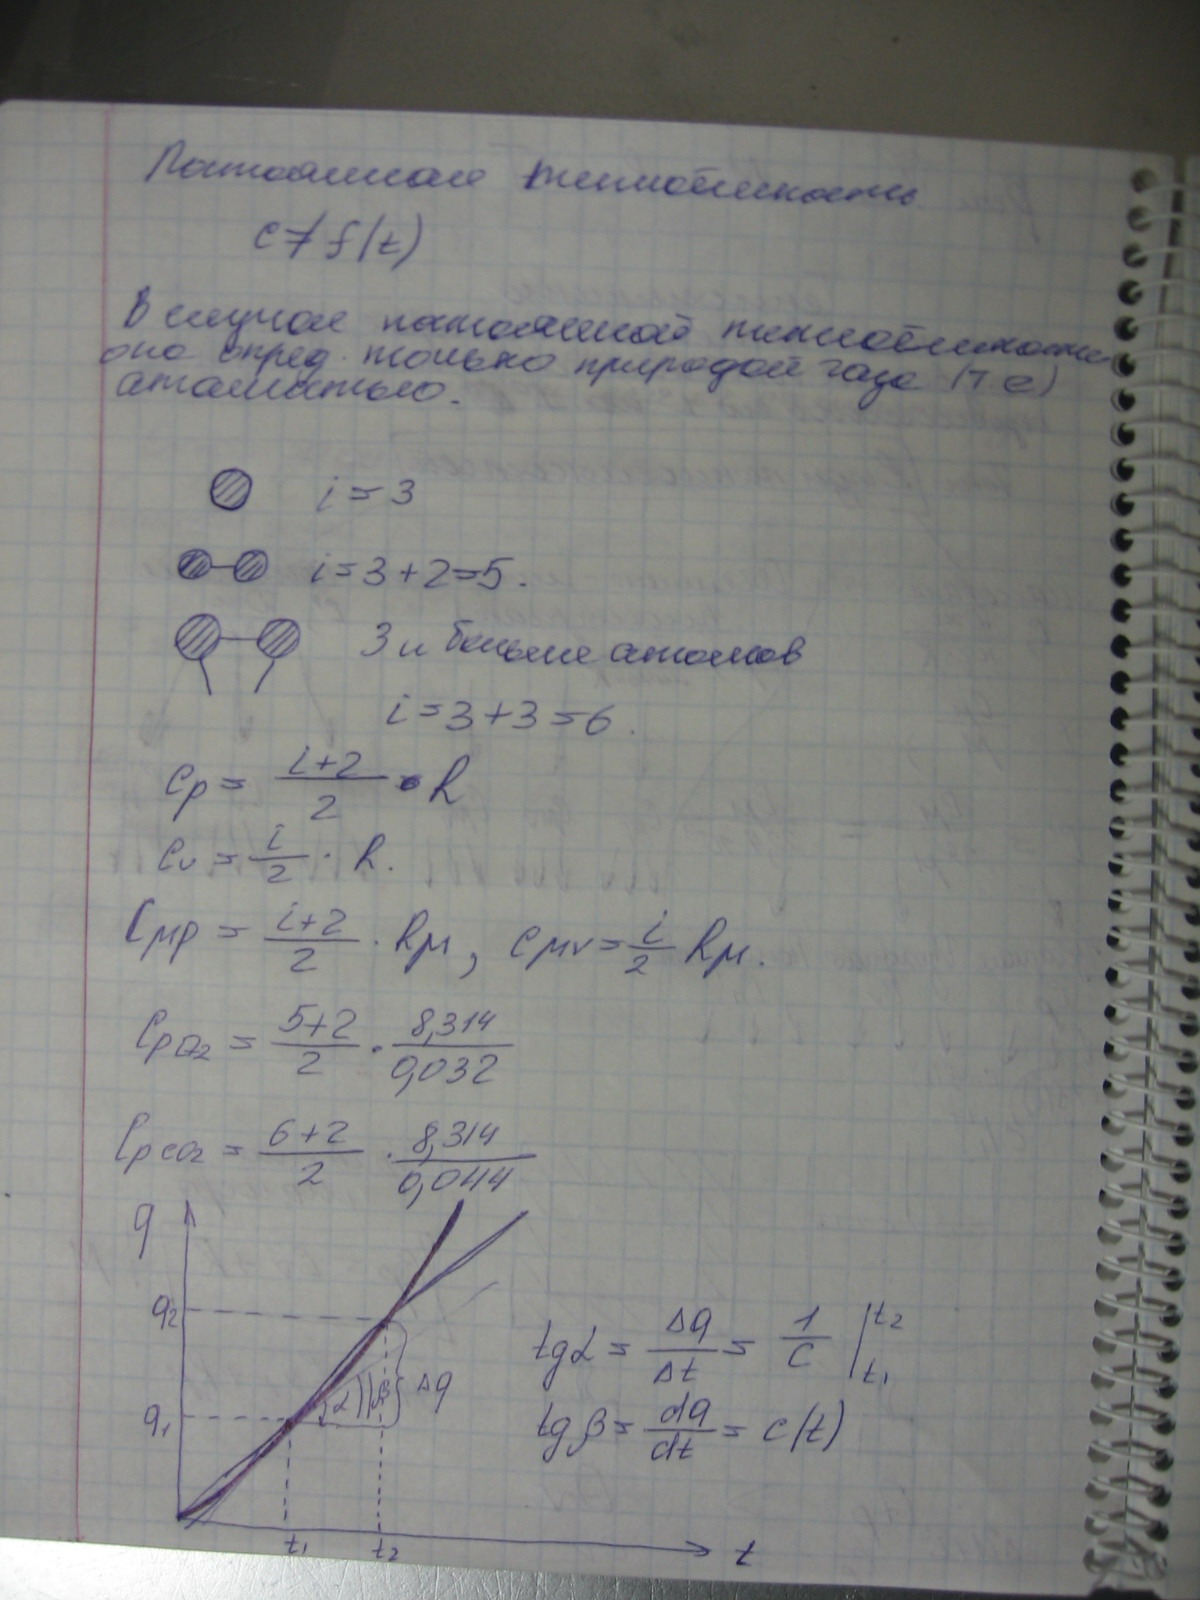 Постоянная теплоёмкость
c ≠ f(t)
В случаи постоянной теплоёмкости
она опред. только природой газа (т е)
атомностью.
i = 3
i = 3 + 2 = 5.
3 и больше атомов
i = 3 + 3 = 6.
Cp = (i+2)/2 · R
Cv = i/2 · R.
Cμp = (i+2)/2 · Rμ, Cμv = i/2 Rμ.
CpO₂ = (5+2)/2 · 8,314/0,032
CpCO₂ = (6+2)/2 · 8,314/0,044
q
q₂
q₁
α β } Δq
t₁ t₂ t
tgα = Δq/Δt = 1/C |t₂ t₁
tgβ = dq/dt = c(t)